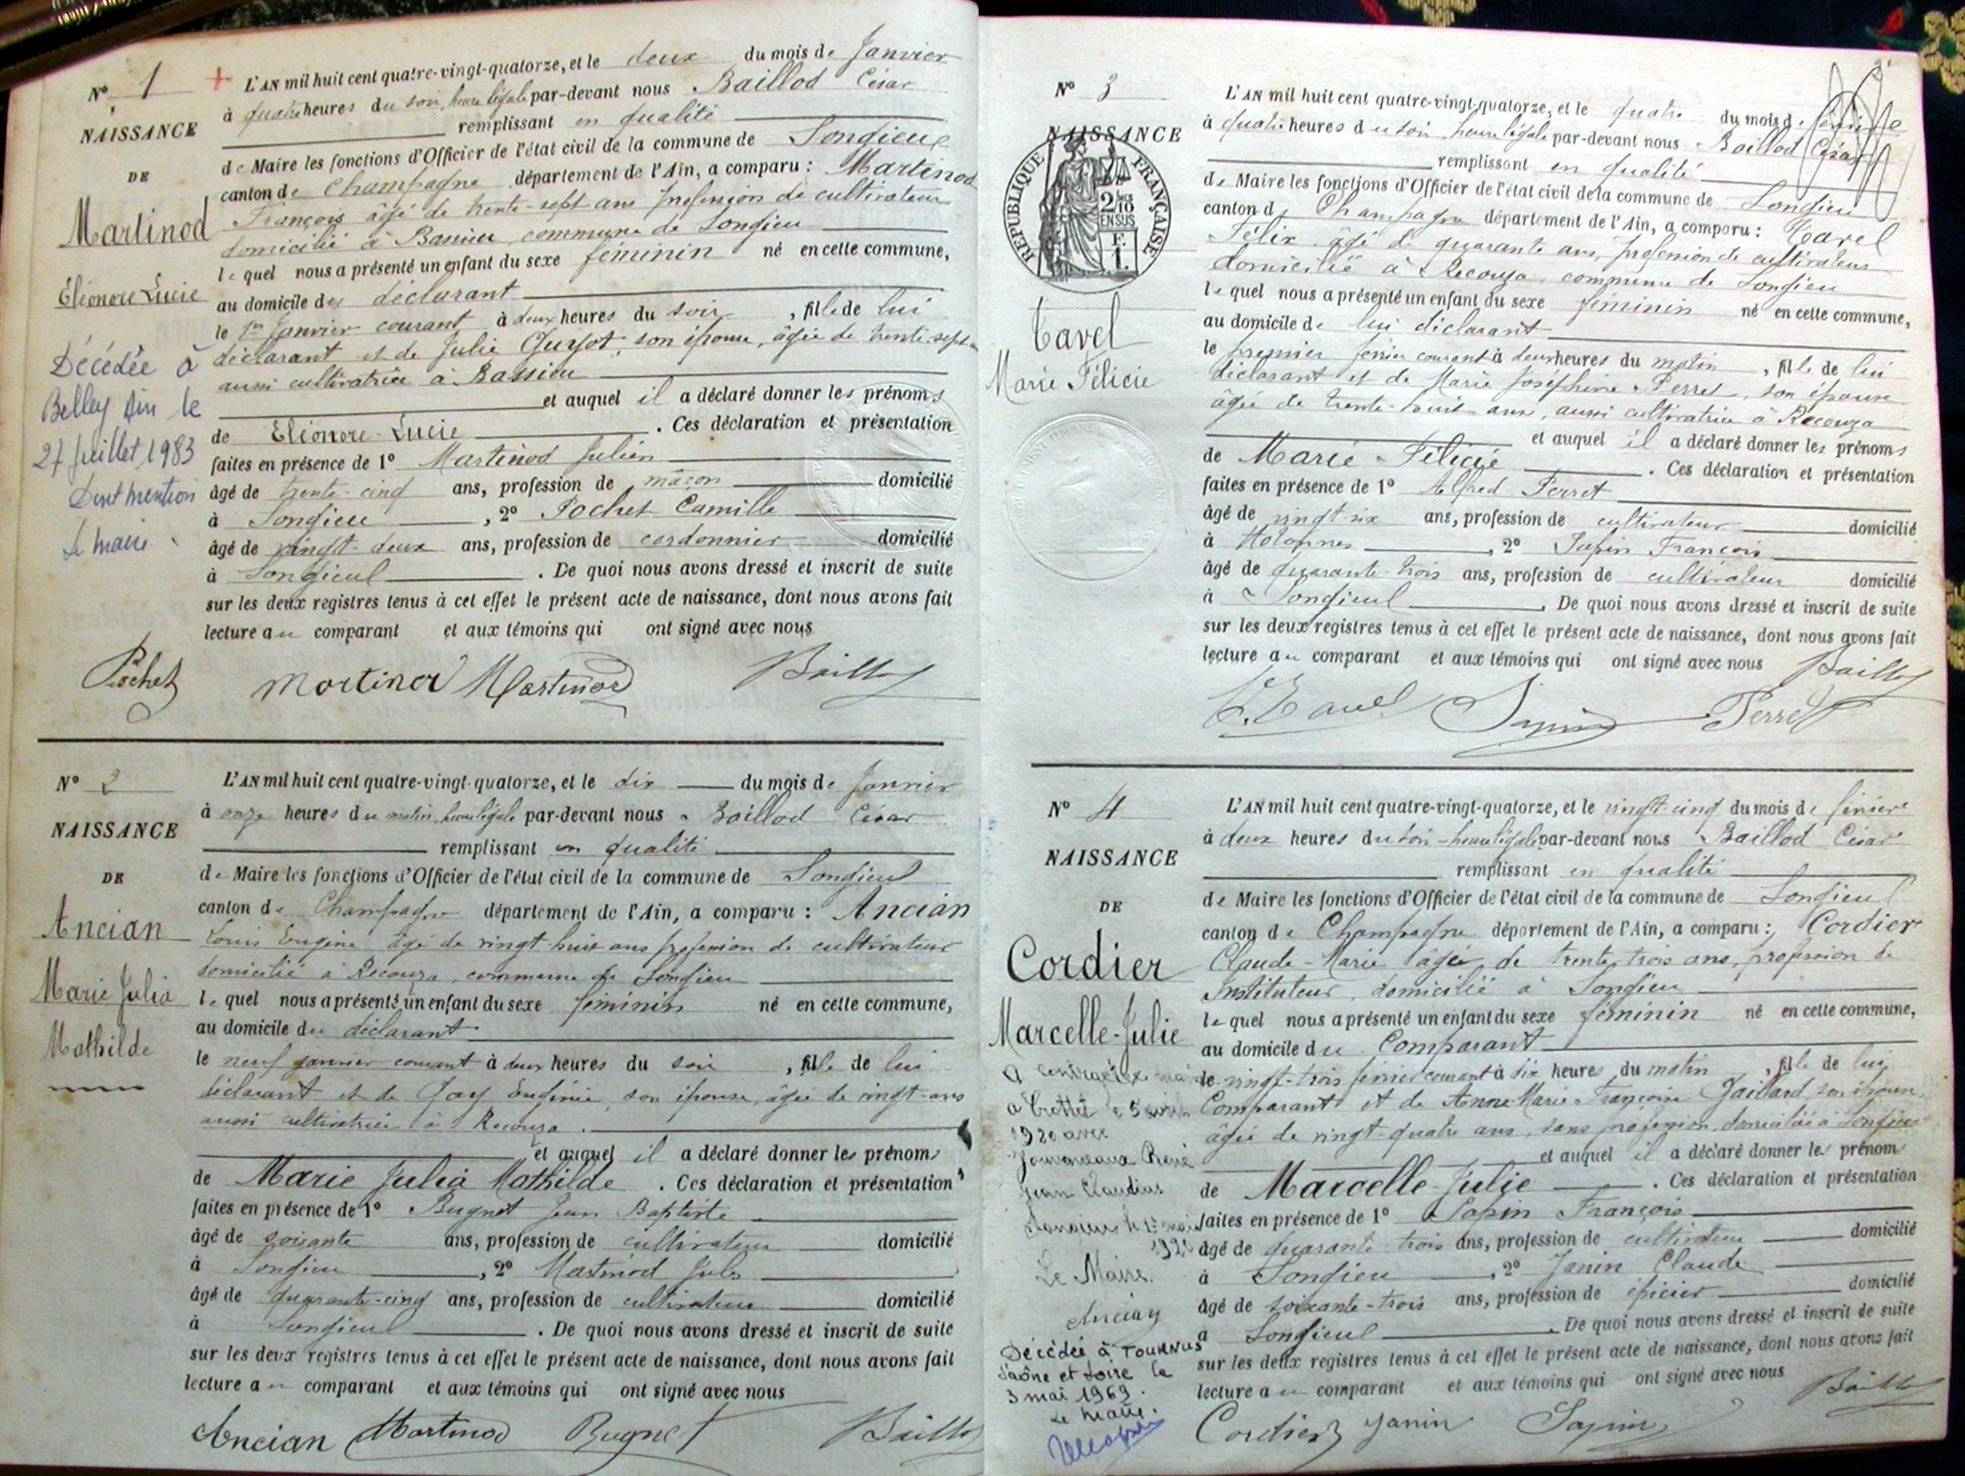 N° 1
NAISSANCE
DE
Martinod
Eléonore Lucie
Décédée à
Belley Ain le
27 Juillet 1983
Dont mention
Le maire
L'AN mil huit cent quatre-vingt-quatorze, et le deux du mois de Janvier
à quatre heures du soir, heure légale par-devant nous Baillod César
remplissant en qualité
de Maire les fonctions d'Officier de l'état civil de la commune de Songieu
canton de Champagne département de l'Ain, a comparu : Martinod
François âgé de trente-sept ans profession de cultivateur
domicilié à Bassieu commune de Songieu
lequel nous a présenté un enfant du sexe féminin né en cette commune,
au domicile du déclarant
le 1er Janvier courant à deux heures du soir, fille de lui
déclarant et de Julie Guyot, son épouse, âgée de trente-sept
aussi cultivatrice à Bassieu
et auquel il a déclaré donner les prénoms
de Eléonore-Lucie. Ces déclaration et présentation
faites en présence de 1° Martinod Julien
âgé de trente-cinq ans, profession de mâçon domicilié
à Songieu, 2° Pochet Camille
âgé de vingt-deux ans, profession de cordonnier domicilié
à Songieu. De quoi nous avons dressé et inscrit de suite
sur les deux registres tenus à cet effet le présent acte de naissance, dont nous avons fait
lecture au comparant et aux témoins qui ont signé avec nous
Pochet Martinod Martinod Baillod
N° 2
NAISSANCE
DE
Ancian
Marie Julia
Mathilde
L'AN mil huit cent quatre-vingt-quatorze, et le dix du mois de Janvier
à onze heures du matin, heure légale par-devant nous Baillod César
remplissant en qualité
de Maire les fonctions d'Officier de l'état civil de la commune de Songieu
canton de Champagne département de l'Ain, a comparu : Ancian
Louis Eugène âgé de vingt-huit ans profession de cultivateur
domicilié à Recouza, commune de Songieu
lequel nous a présenté un enfant du sexe féminin né en cette commune,
au domicile du déclarant
le neuf janvier courant à deux heures du soir, fille de lui
déclarant et de Gay Eugénie, son épouse, âgée de vingt-ans
aussi cultivatrice à Recouza.
et auquel il a déclaré donner les prénoms
de Marie Julia Mathilde. Ces déclaration et présentation
faites en présence de 1° Bugnet Jean Baptiste
âgé de soixante ans, profession de cultivateur domicilié
à Songieu, 2° Martinod Jules
âgé de quarante-cinq ans, profession de cultivateur domicilié
à Songieu. De quoi nous avons dressé et inscrit de suite
sur les deux registres tenus à cet effet le présent acte de naissance, dont nous avons fait
lecture au comparant et aux témoins qui ont signé avec nous
Ancian Martinod Bugnet Baillod
N° 3
NAISSANCE
RÉPUBLIQUE FRANÇAISE
2/10
EN SUS
F.
1.
Tavel
Marie Félicie
L'AN mil huit cent quatre-vingt-quatorze, et le quatre du mois de février
à quatre heures du soir, heure légale par-devant nous Baillod César
remplissant en qualité
de Maire les fonctions d'Officier de l'état civil de la commune de Songieu
canton de Champagne département de l'Ain, a comparu : Tavel
Félix âgé de quarante ans, profession de cultivateur
domicilié à Recouza commune de Songieu
lequel nous a présenté un enfant du sexe féminin né en cette commune,
au domicile de lui déclarant
le premier février courant à deux heures du matin, fille de lui
déclarant et de Marie Joséphine Perret, son épouse
âgée de trente-huit ans, aussi cultivatrice à Recouza
et auquel il a déclaré donner les prénoms
de Marie Félicie. Ces déclaration et présentation
faites en présence de 1° Alfred Perret
âgé de vingt-six ans, profession de cultivateur domicilié
à Hotonnes, 2° Sapin François
âgé de quarante-trois ans, profession de cultivateur domicilié
à Songieu. De quoi nous avons dressé et inscrit de suite
sur les deux registres tenus à cet effet le présent acte de naissance, dont nous avons fait
lecture au comparant et aux témoins qui ont signé avec nous Baillod
Tavel Sapin Perret
N° 4
NAISSANCE
DE
Cordier
Marcelle-Julie
A contracté mariage
à Crottet le 5 avril
1920 avec
René
Jean Claudius
Songieu le
1920
Le Maire.
Ancian
Décédée à TOURNUS
Saône et Loire le
3 mai 1969.
Le Maire.
L'AN mil huit cent quatre-vingt-quatorze, et le vingt-cinq du mois de février
à deux heures du soir-heure légale par-devant nous Baillod César
remplissant en qualité
de Maire les fonctions d'Officier de l'état civil de la commune de Songieu
canton de Champagne département de l'Ain, a comparu : Cordier
Claude-Marie âgé de trente-trois ans, profession de
Instituteur, domicilié à Songieu
lequel nous a présenté un enfant du sexe féminin né en cette commune,
au domicile du Comparant
le vingt-trois février courant à dix heures du matin, fille de lui
Comparant et de Anne-Marie-Françoise Gaillard son épouse,
âgée de vingt-quatre ans, sans profession domiciliée à Songieu
et auquel il a déclaré donner les prénom
de Marcelle-Julie. Ces déclaration et présentation
faites en présence de 1° Sapin François
âgé de quarante-trois ans, profession de cultivateur domicilié
à Songieu, 2° Janin Claude
âgé de soixante-trois ans, profession de épicier domicilié
à Songieu. De quoi nous avons dressé et inscrit de suite
sur les deux registres tenus à cet effet le présent acte de naissance, dont nous avons fait
lecture au comparant et aux témoins qui ont signé avec nous Baillod
Cordier Janin Sapin